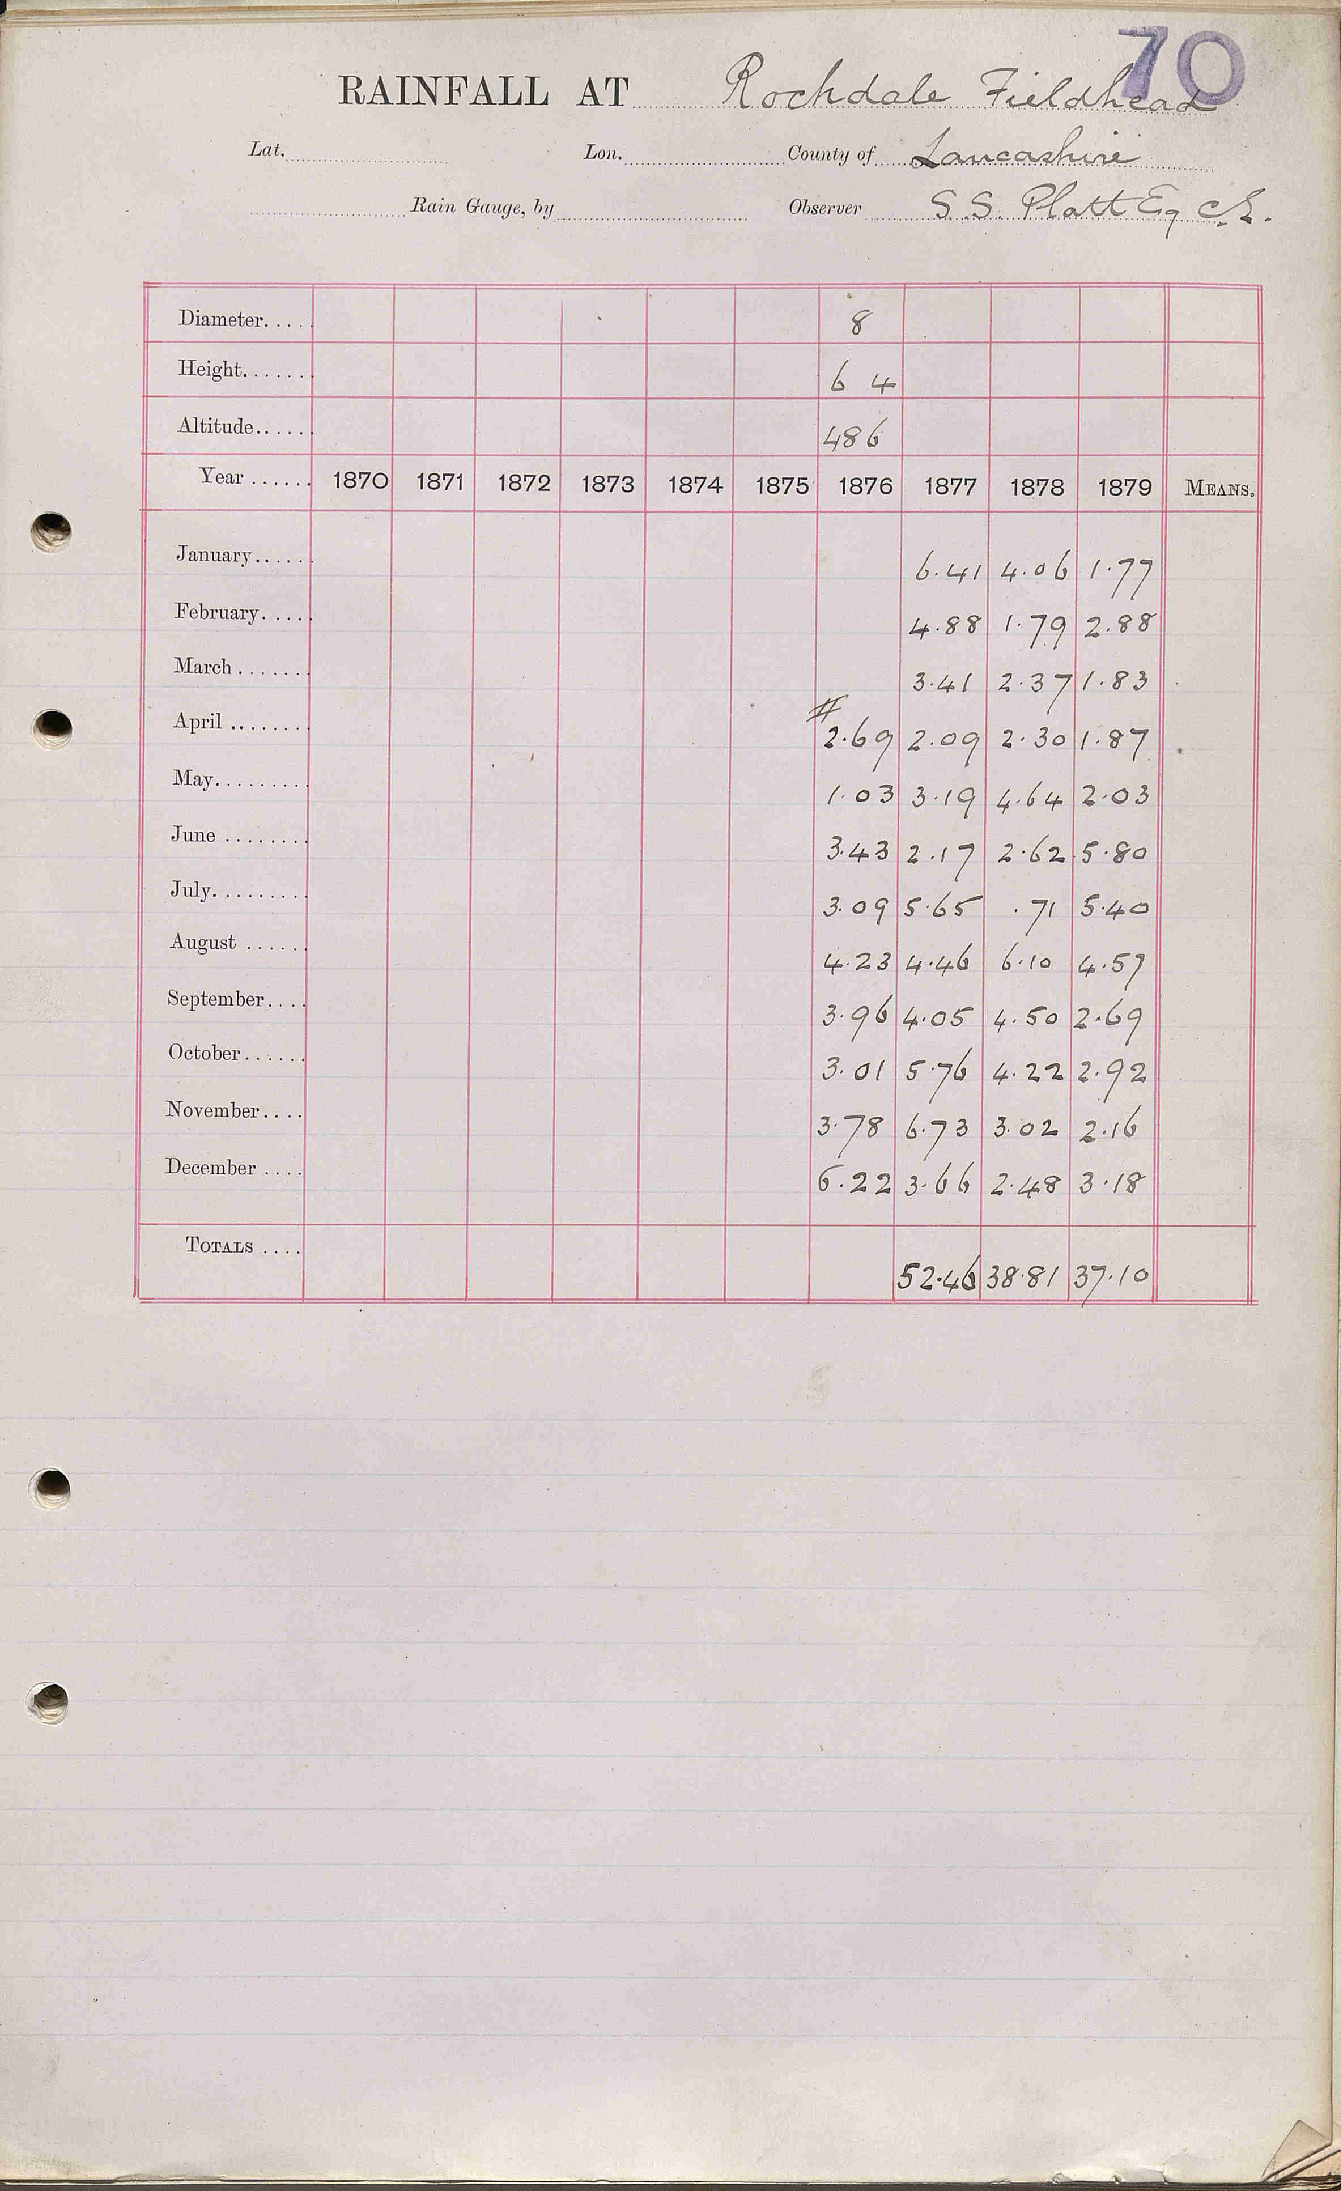 70
RAINFALL AT Rochdale Fieldhead
Lat. Lon. County of Lancashire
Rain Gauge, by Observer S.S. Platt Esq C.E.
Diameter..... 8
Height....... 6 4
Altitude...... 486
Year ...... 1870 1871 1872 1873 1874 1875 1876 1877 1878 1879 MEANS.
January...... 6.41 4.06 1.77
February..... 4.88 1.79 2.88
March ....... 3.41 2.37 1.83
#
April ........ 2.69 2.09 2.30 1.87
May......... 1.03 3.19 4.64 2.03
June ........ 3.43 2.17 2.62 5.80
July......... 3.09 5.65 .71 5.40
August ...... 4.23 4.46 6.10 4.57
September.... 3.96 4.05 4.50 2.69
October...... 3.01 5.76 4.22 2.92
November.... 3.78 6.73 3.02 2.16
December .... 6.22 3.66 2.48 3.18
TOTALS .... 52.46 38.81 37.10